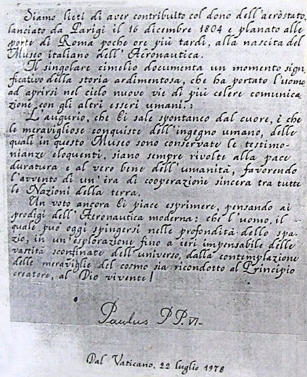 Siamo lieti di aver contribuito col dono dell'aeròstato,
lanciato da Parigi il 16 dicembre 1804 e planato alle
porte di Roma poche ore più tardi, alla nascita del
Museo italiano dell'Aeronautica.
Il singolare cimelio documenta un momento signi
ficativo della storia ardimentosa, che ha portato l'uomo
ad aprirsi nel cielo nuove vie di più celere comunica
zione con gli altri esseri umani.
L'augurio, che Ci sale spontaneo dal cuore, è che
le meravigliose conquiste dell'ingegno umano, delle
quali in questo Museo sono conservate le testimo-
nianze eloquenti, siano sempre rivolte alla pace
duratura e al vero bene dell'umanità, favorendo
l'avvento di un'èra di cooperazione sincera tra tutte
le Nazioni della terra.
Un voto ancora Ci piace esprimere, pensando ai
prodigi dell'Aeronautica moderna: che l'uomo, il
quale può oggi spingersi nelle profondità dello spa-
zio, in un'esplorazione fino a ieri impensabile delle
vastità sconfinate dell'universo, dalla contemplazione
delle meraviglie del cosmo sia ricondotto al Principio
creatore, al Dio vivente!
Paulus PP. VI.
Dal Vaticano, 22 luglio 1978